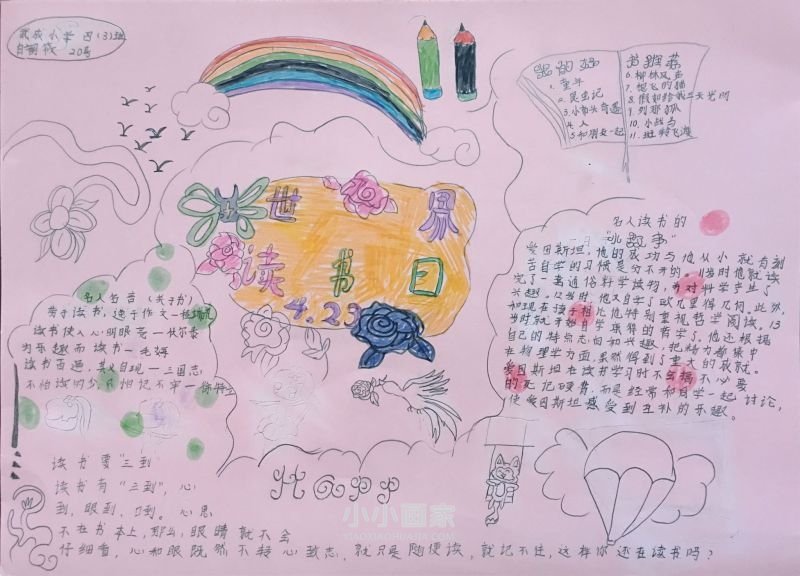 武成小学 四(3)班
20号
世界
读书日
4.23
书推荐
1. 童年
2. 昆虫记
3. 小布头奇遇
4. 人
5. 和朋友一起
6. 柳林风声
7. 会飞的猫
8. 假如给我三天光明
9. 列那狐
10. 小战马
11. 班特飞游
名人名言(关于书)
劳于读书,逸于作文一程端礼
读书使人心明眼亮一伏尔泰
为乐趣而读书一毛姆
读书百遍,其义自现一三国志
不怕读得少,只怕记不牢一徐特立
名人读书的
"小故事"
爱因斯坦,他的成功与他从小就有刻
苦自学的习惯是分不开的。
完了一套通俗科学读物,并对科学产生了
兴趣,12岁时,他又自学了欧几里得几何。此外,
和现在孩子相比他特别重视哲学阅读。13
岁时就开始自学康得的哲学了。他还根据
自己的特点志向和兴趣,把精力都集中
在物理学方面,果然得到了重大的成就。
爱因斯坦在读书学习时不会搞不必要
的死记硬背,而是经常和同学一起讨论,
使爱因斯坦感受到互补的乐趣。
读书要"三到"
读书有"三到",心
到,眼到,口到。心思
不在书本上,那么,眼睛就不会
仔细看,心和眼既然不转心致志,就只是随便读,就记不住,这样你还在读书吗?
Happ
小小画家
XIAOXIAOHUAJIA.COM